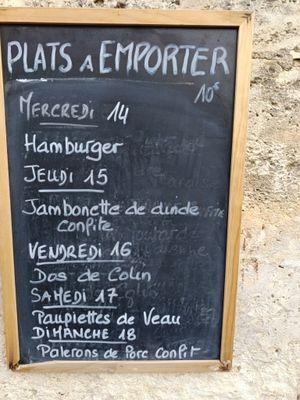 PLATS A EMPORTER
10€
MERCREDI 14
Hamburger
JEUDI 15
Jambonette de dinde
confite
VENDREDI 16
Dos de Colin
SAMEDI 17
Paupiettes de Veau
DIMANCHE 18
Palerons de Porc Confit